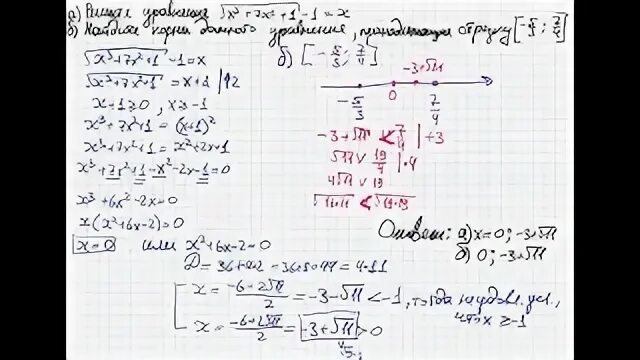 а) Решите уравнение √x³+7x²+1 -1=x
б) Найдите корни данного уравнения, принадлежащие отрезку [-5/3; 7/4]
√x³+7x²+1 -1=x
√x³+7x²+1 =x+1 |↑2
x+1≥0, x≥-1
x³+7x²+1=(x+1)²
x³+7x²+1=x²+2x+1
x³+7x²+1-x²-2x-1=0
x³+6x²-2x=0
x(x²+6x-2)=0
x=0 или x²+6x-2=0
D=36+4·2=36+8=44=4·11
x = (-6-2√11)/2 = -3-√11 < -1, тогда не удовл. усл., что x≥-1
x = (-6+2√11)/2 = -3+√11 > 0
б) [-5/3; 7/4]
-3+√11
-5/3 0 7/4
-3+√11 < 7/4 |+3
√11 ∨ 19/4 |·4
4√11 ∨ 19
√16·11 < √19·19
Ответ: а) x=0; -3+√11
б) 0; -3+√11